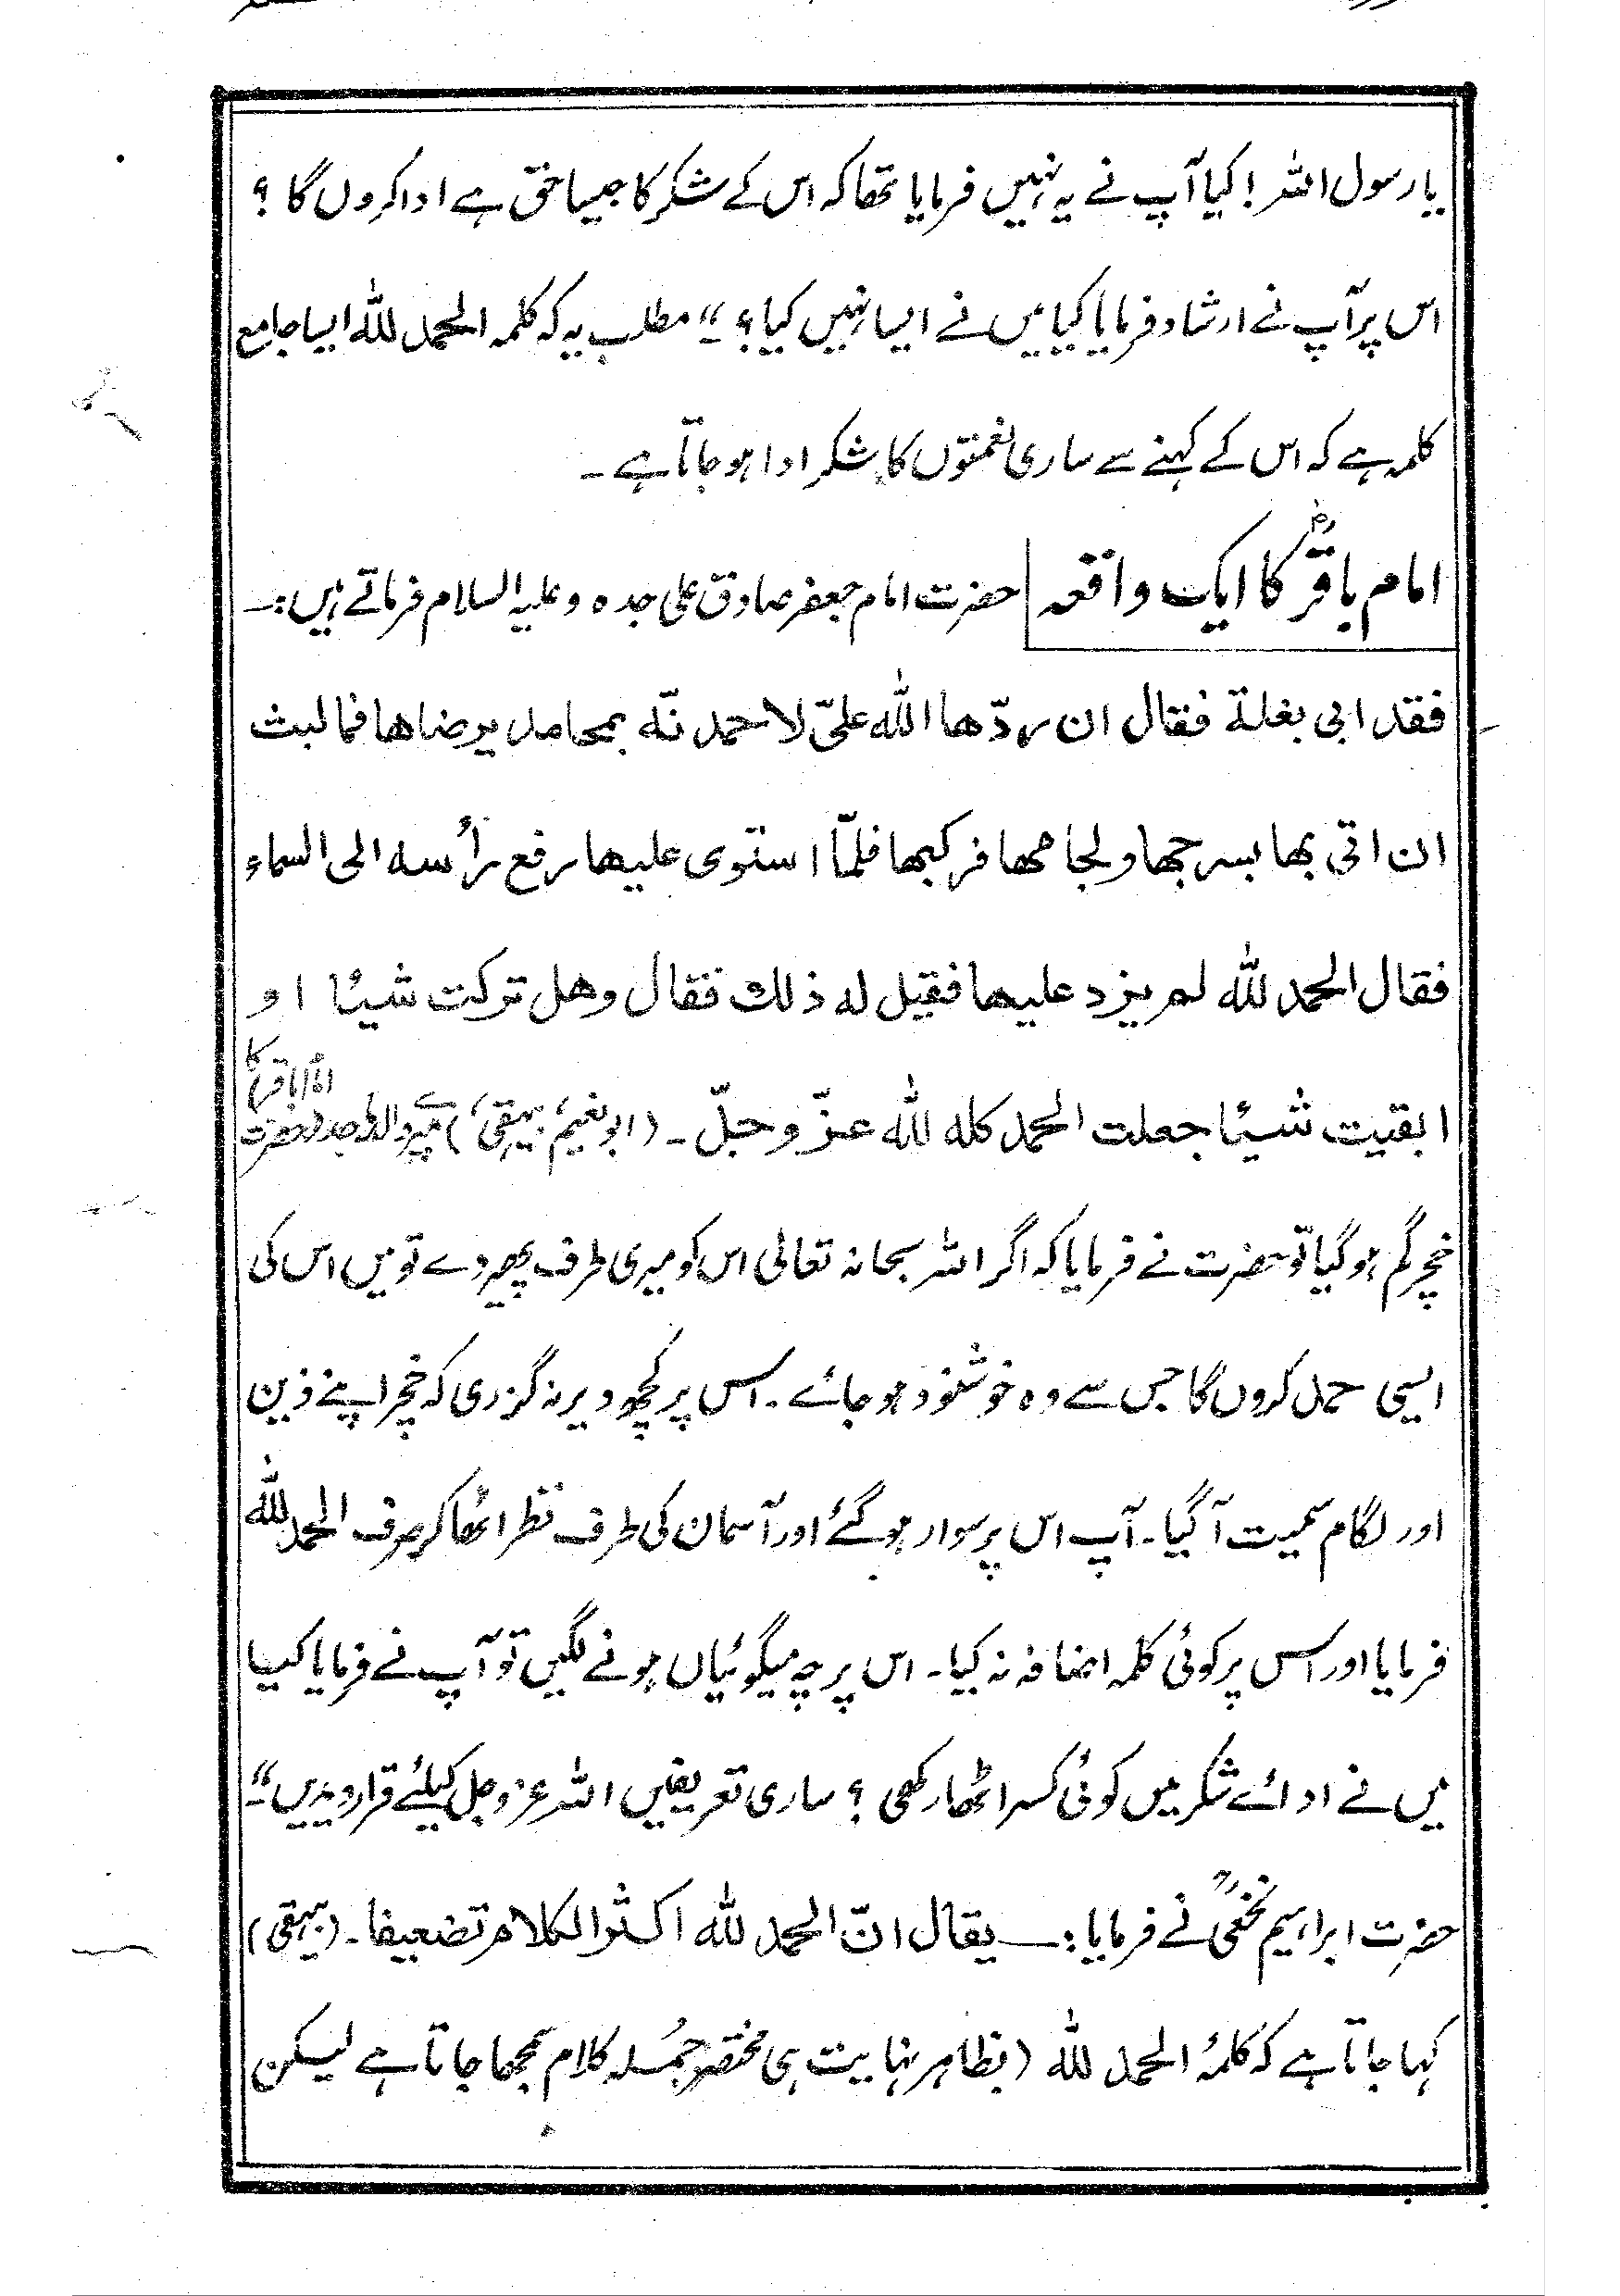 یا رسول اللہ! کیا آپ نے یہ نہیں فرمایا تھا کہ اس کے شکر کا جیسا حق ہے ادا کروں گا ؟
اس پر آپ نے ارشاد فرمایا کیا میں نے ایسا نہیں کیا؟" مطلب یہ کہ کلمہ الحمد للہ ایسا جامع
کلمہ ہے کہ اس کے کہنے سے ساری نعمتوں کا شکر ادا ہو جاتا ہے ۔
امام باقرؓ کا ایک واقعہ حضرت امام جعفر صادق علی جدہ و علیہ السلام فرماتے ہیں:۔
فقد ابی بغلۃ فقال ان ردّھا اللہ علیّ لاحمدنّہ بمحامد یرضاھا فما لبث
ان اتی بھا بسرجھا ولجامھا فرکبھا فلمّا استوی علیھا رفع رأسہ الی السماء
فقال الحمد للہ لم یزد علیھا فقیل لہ ذلک فقال وھل ترکت شیئا او
ابقیت شیئا جعلت الحمد کلہ للہ عزّ وجلّ ۔ (ابو نعیمؒ، بیہقیؒ) میرے والد ماجد حضرت (امام باقر) کا
خچر گم ہو گیا تو حضرت نے فرمایا کہ اگر اللہ سبحانہ تعالی اس کو میری طرف پھیر دے تو میں اس کی
ایسی حمد کروں گا جس سے وہ خوشنود ہو جائے ۔ اس پر کچھ دیر نہ گزری کہ خچر اپنے زین
اور لگام سمیت آ گیا ۔ آپ اس پر سوار ہو گئے اور آسمان کی طرف نظر اٹھا کر صرف الحمد للہ
فرمایا اور اس پر کوئی کلمہ اضافہ نہ کیا ۔ اس پر چہ میگوئیاں ہونے لگیں تو آپ نے فرمایا کیا
میں نے ادائے شکر میں کوئی کسر اٹھا رکھی ؟ ساری تعریفیں اللہ عز وجل کیلئے قرار دیدیں"۔
حضرت ابراہیم نخعیؒ نے فرمایا :۔ یقال انّ الحمد للہ اکثر الکلام تضعیفا ۔ (بیہقی)
کہا جاتا ہے کہ کلمۂ الحمد للہ (بظاہر نہایت ہی مختصر جملہ کلام سمجھا جاتا ہے لیکن